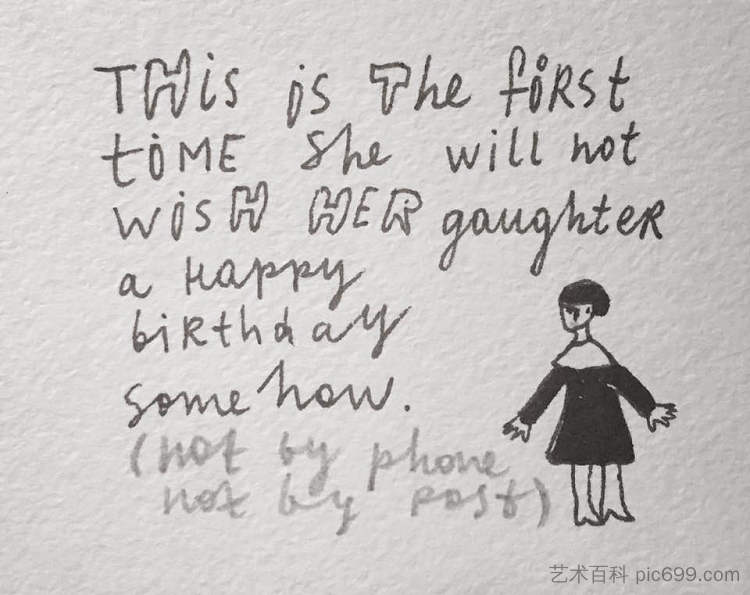 THis is The fiRst
tiME She will not
WisH HER gaughtER
a Happy
biRthday
somehow.
(not by phone
not by post)
艺术百科 pic699.com